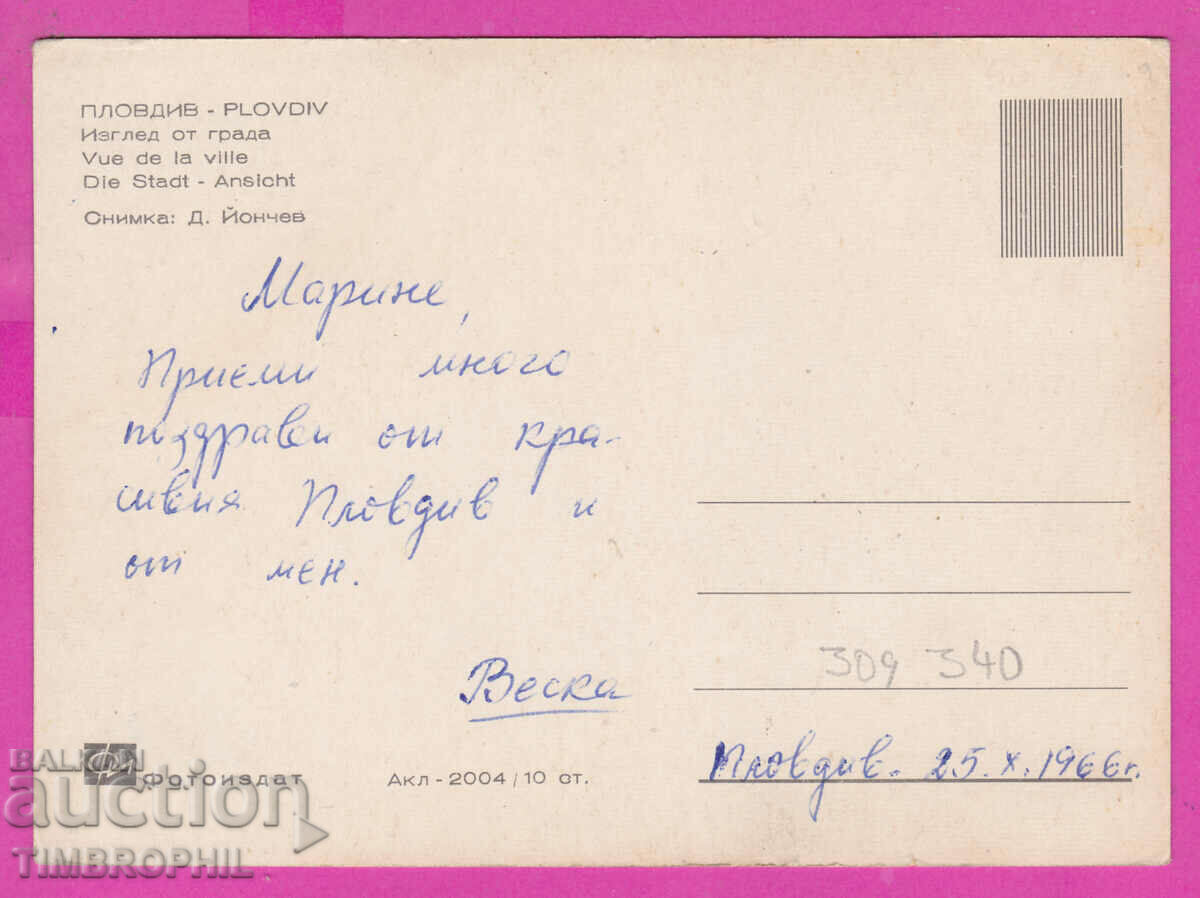 ПЛОВДИВ - PLOVDIV
Изглед от града
Vue de la ville
Die Stadt - Ansicht
Снимка: Д. Йончев
Марине,
Приеми много
поздрави от кра-
сивия Пловдив и
от мен.
Веска
309 340
Пловдив. 25.X.1966г.
Фотоиздат
Акл-2004/10 ст.
BALKAN
auction
TIMBROPHIL